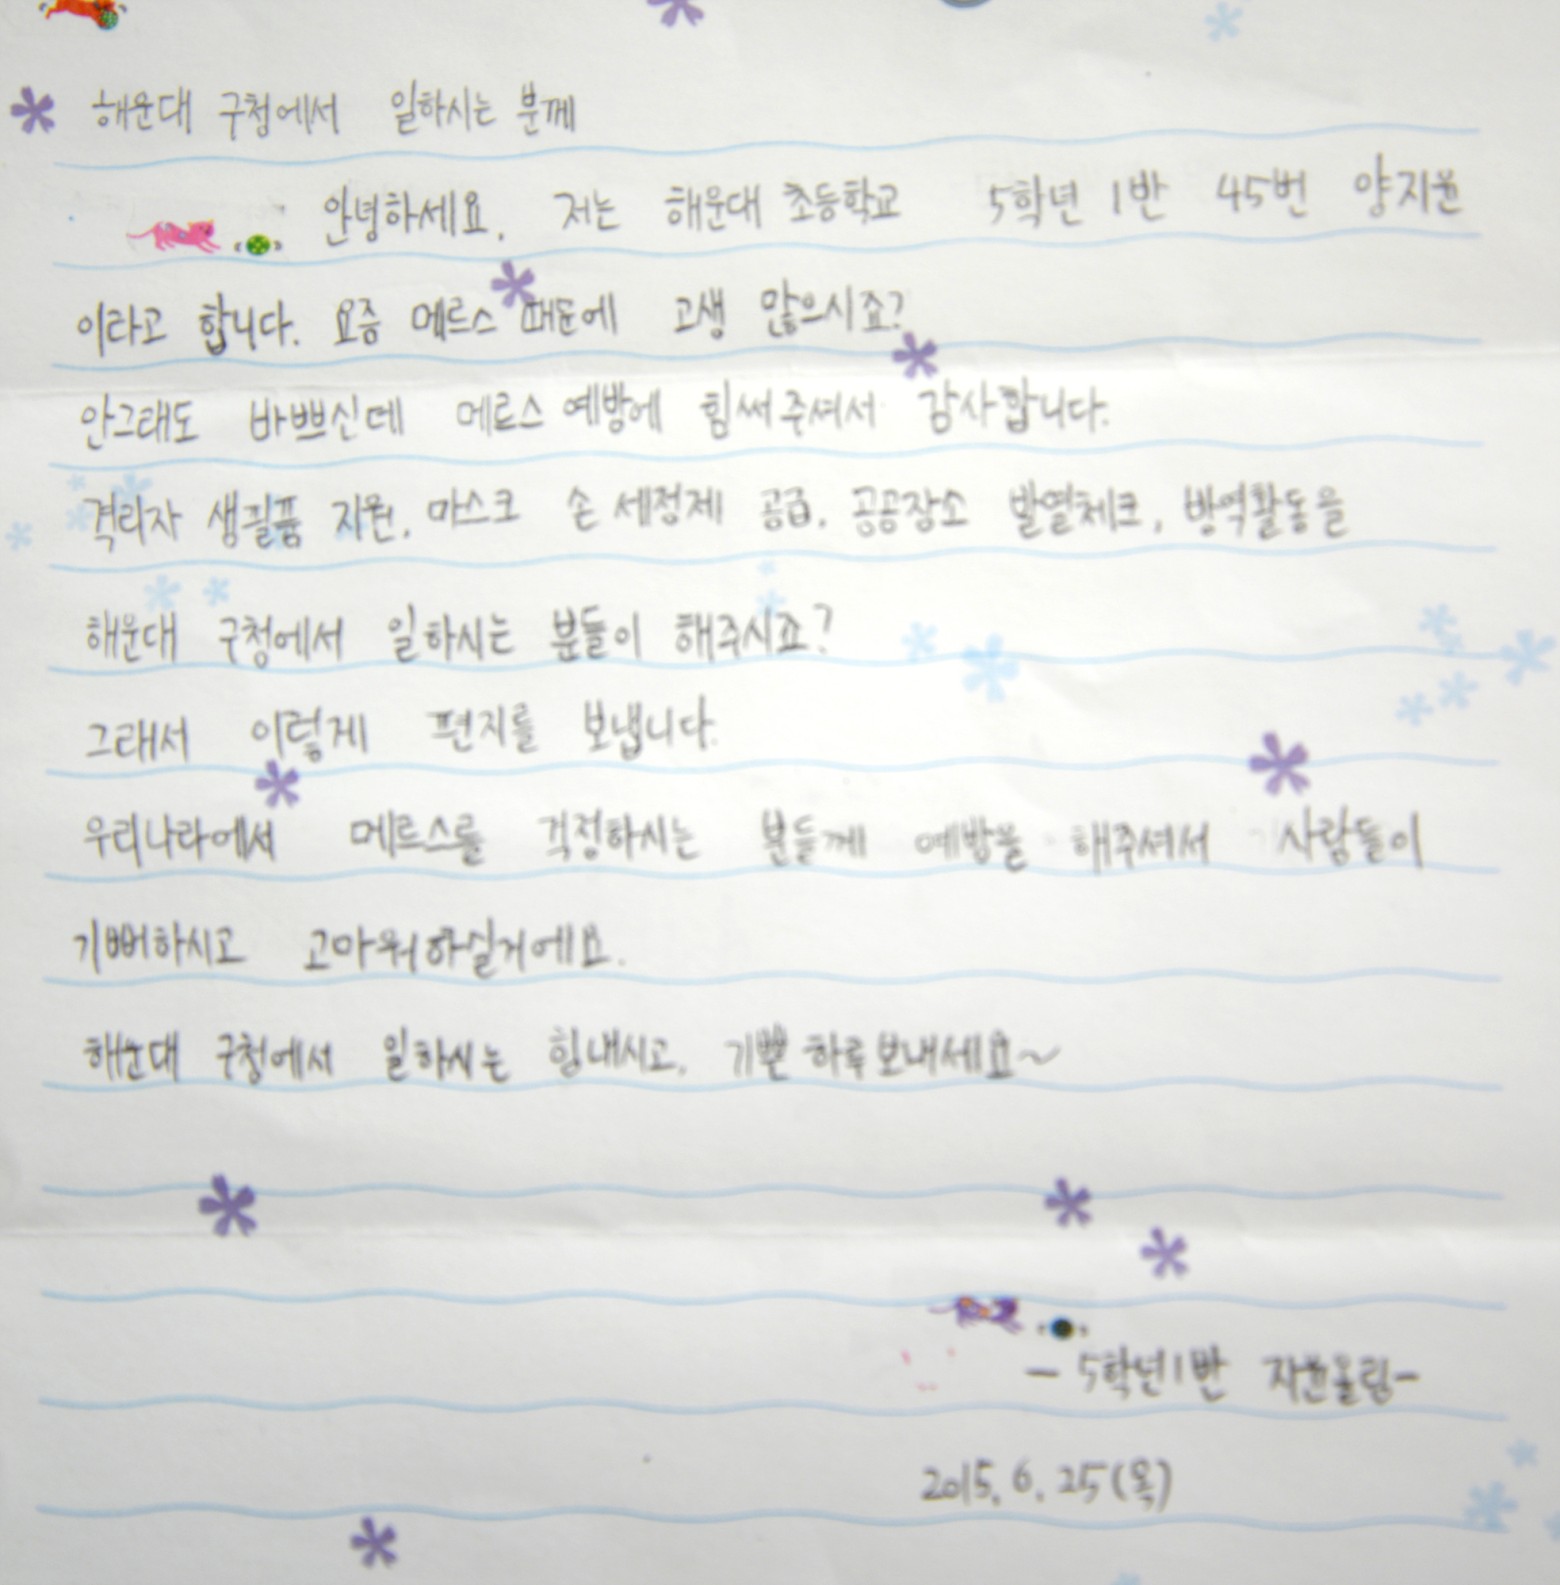 해운대 구청에서 일하시는 분께
안녕하세요. 저는 해운대 초등학교 5학년 1반 45번 양지윤
이라고 합니다. 요즘 메르스 때문에 고생 많으시죠?
안그래도 바쁘신데 메르스 예방에 힘써주셔서 감사합니다.
격리자 생필품 지원, 마스크 손 세정제 공급, 공공장소 발열체크, 방역활동을
해운대 구청에서 일하시는 분들이 해주시죠?
그래서 이렇게 편지를 보냅니다.
우리나라에서 메르스를 걱정하시는 분들께 예방을 해주셔서 사람들이
기뻐하시고 고마워하실거에요.
해운대 구청에서 일하시는 힘내시고, 기쁜 하루 보내세요~
- 5학년1반 지윤올림-
2015. 6. 25(목)